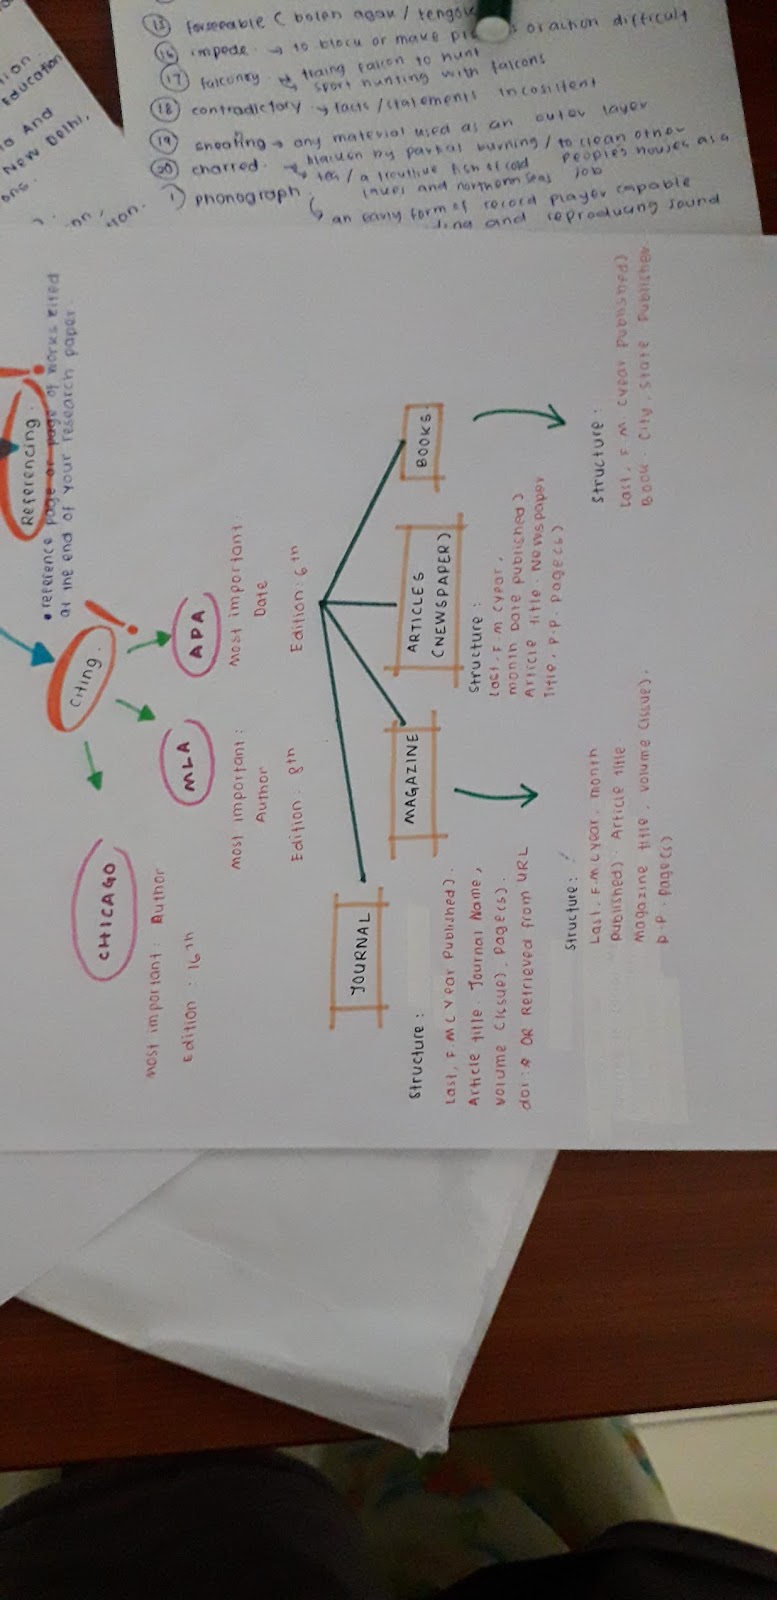 (15) forseeable (bolen agak /
(16) impede → to block or make or action difficult
(17) falconry → traing falcon to hunt
↳ sport hunting with falcons
(18) contradictory → facts/statements incositent
(19) → any material used as an outer layer
(20) charred. → by partial burning / to clean other
people's houses as a job
lakes and northern seas
1) phonograph.
↳ an early form of record player capable
and reproducing sound
Education
And
New Delhi,
Referencing.
• reference page or page of works cited
at the end of your research paper
Citing.
APA
Most important
Date
Edition: 6th
MLA
Most important:
Author
Edition: 8th
CHICAGO
Most important: Author
Edition: 16th
BOOKS.
Structure:
Last, F. M. (year published)
Book. City, State Publisher
ARTICLES
(NEWSPAPER)
Structure:
Last. F. M (year,
month Date published)
Article title. Newspaper
Title, p.p. page(s)
MAGAZINE
Structure:
Last, F.M (year, month
published). Article title
Magazine title, volume (issue).
p.p. page(s)
JOURNAL
Structure:
Last, F.M (Year Published).
Article title. Journal Name,
Volume (issue), Page(s).
doi: # OR Retrieved from URL